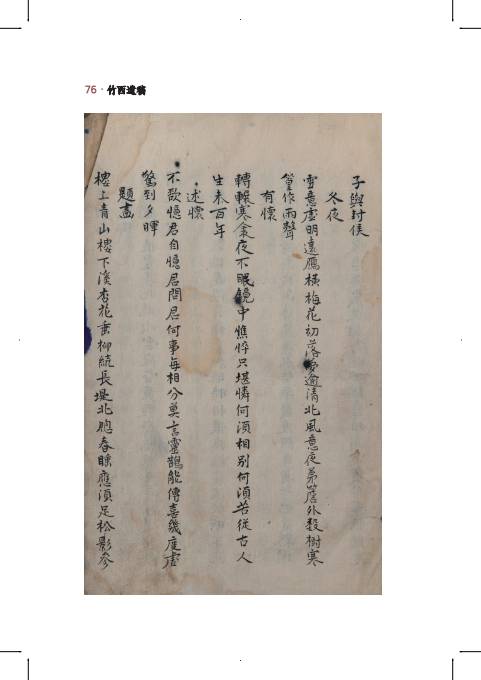 76 · 竹西遺稿
子與封侯
冬夜
雪意虛明遠鴈橫梅花初落夢逾清北風意夜茅簷外數樹寒
篁作雨聲
有懷
轉輾寒衾夜不眠鏡中憔悴只堪憐何須相別何須苦從古人
生未百年
述懷
不欲憶君自憶君問君何事每相分莫言靈鵲能傳喜幾度虛
驚到夕暉
題畫
樓上青山樓下溪杏花垂柳繞長堤北牕春睡應須足松影參